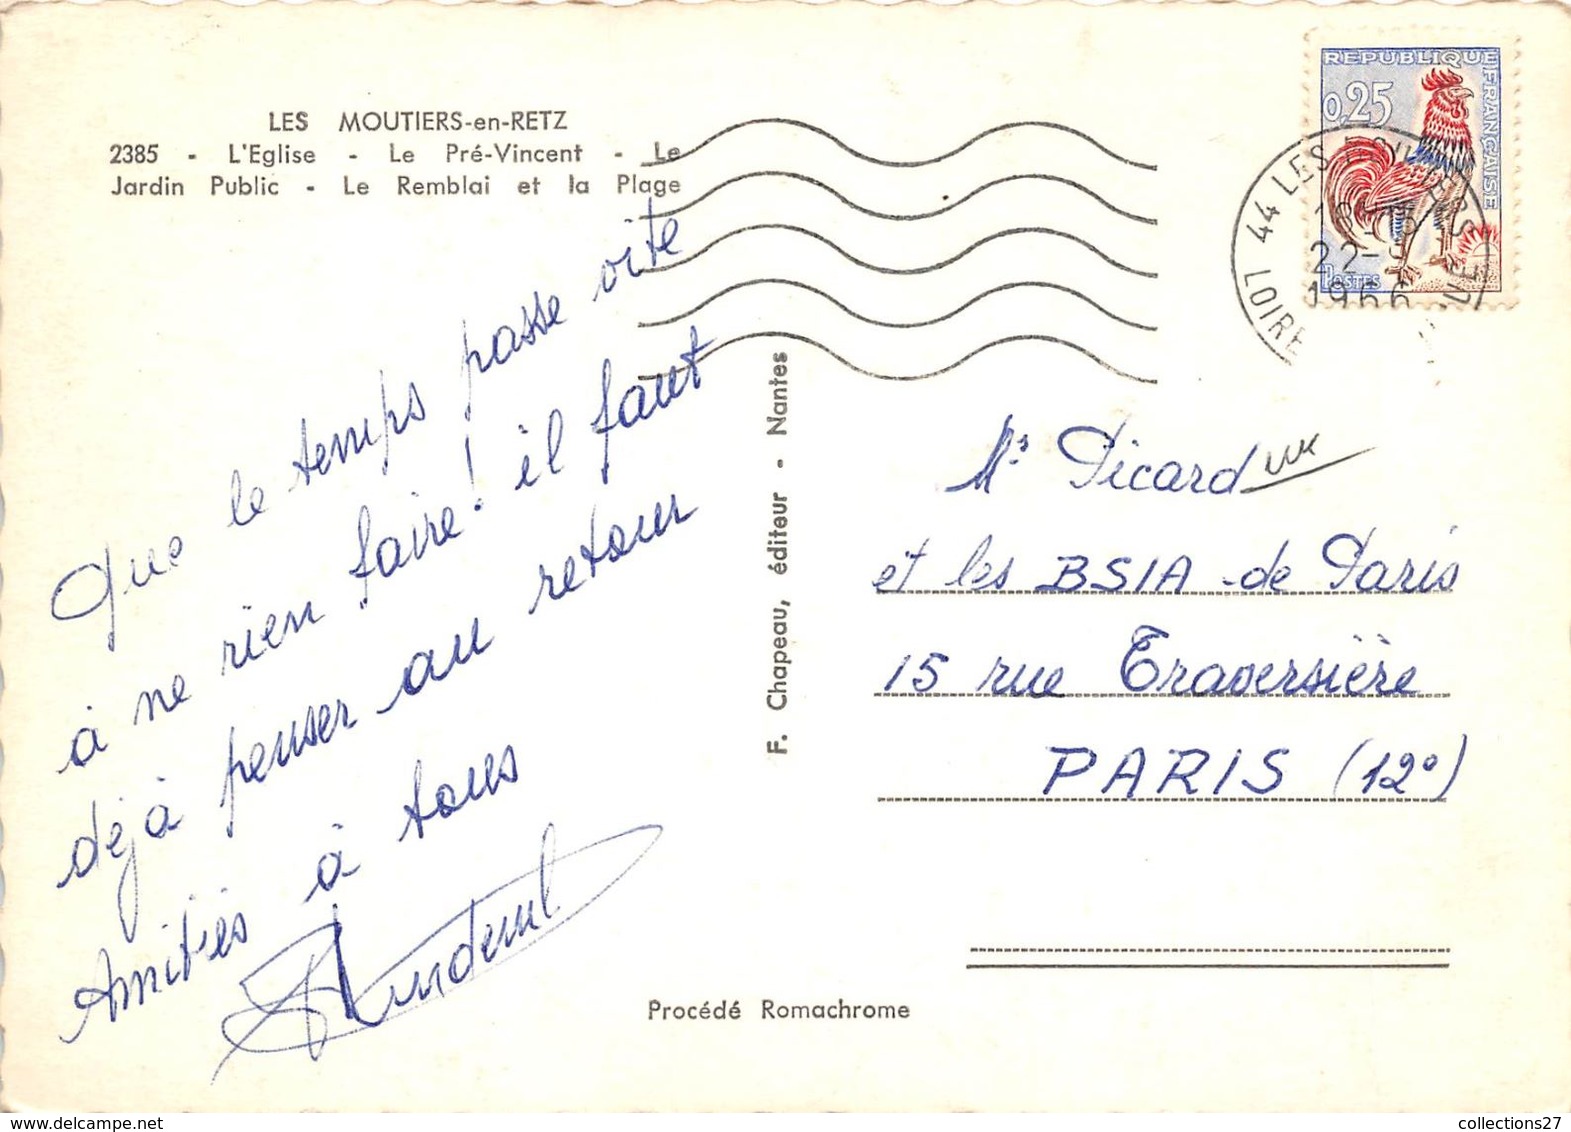 LES MOUTIERS-en-RETZ
2385 - L'Eglise - Le Pré-Vincent - Le
Jardin Public - Le Remblai et la Plage
Que le temps passe vite
à ne rien faire! il faut
déjà penser au retour
Amitiés à tous
F. Chapeau, éditeur - Nantes
Procédé Romachrome
REPUBLIQUE
FRANÇAISE
0,25
POSTES
44 LES MOUTIERS
22-
1966
LOIRE
Ms Picard
et les BSIA de Paris
15 rue Traversière
PARIS (12°)
collections27